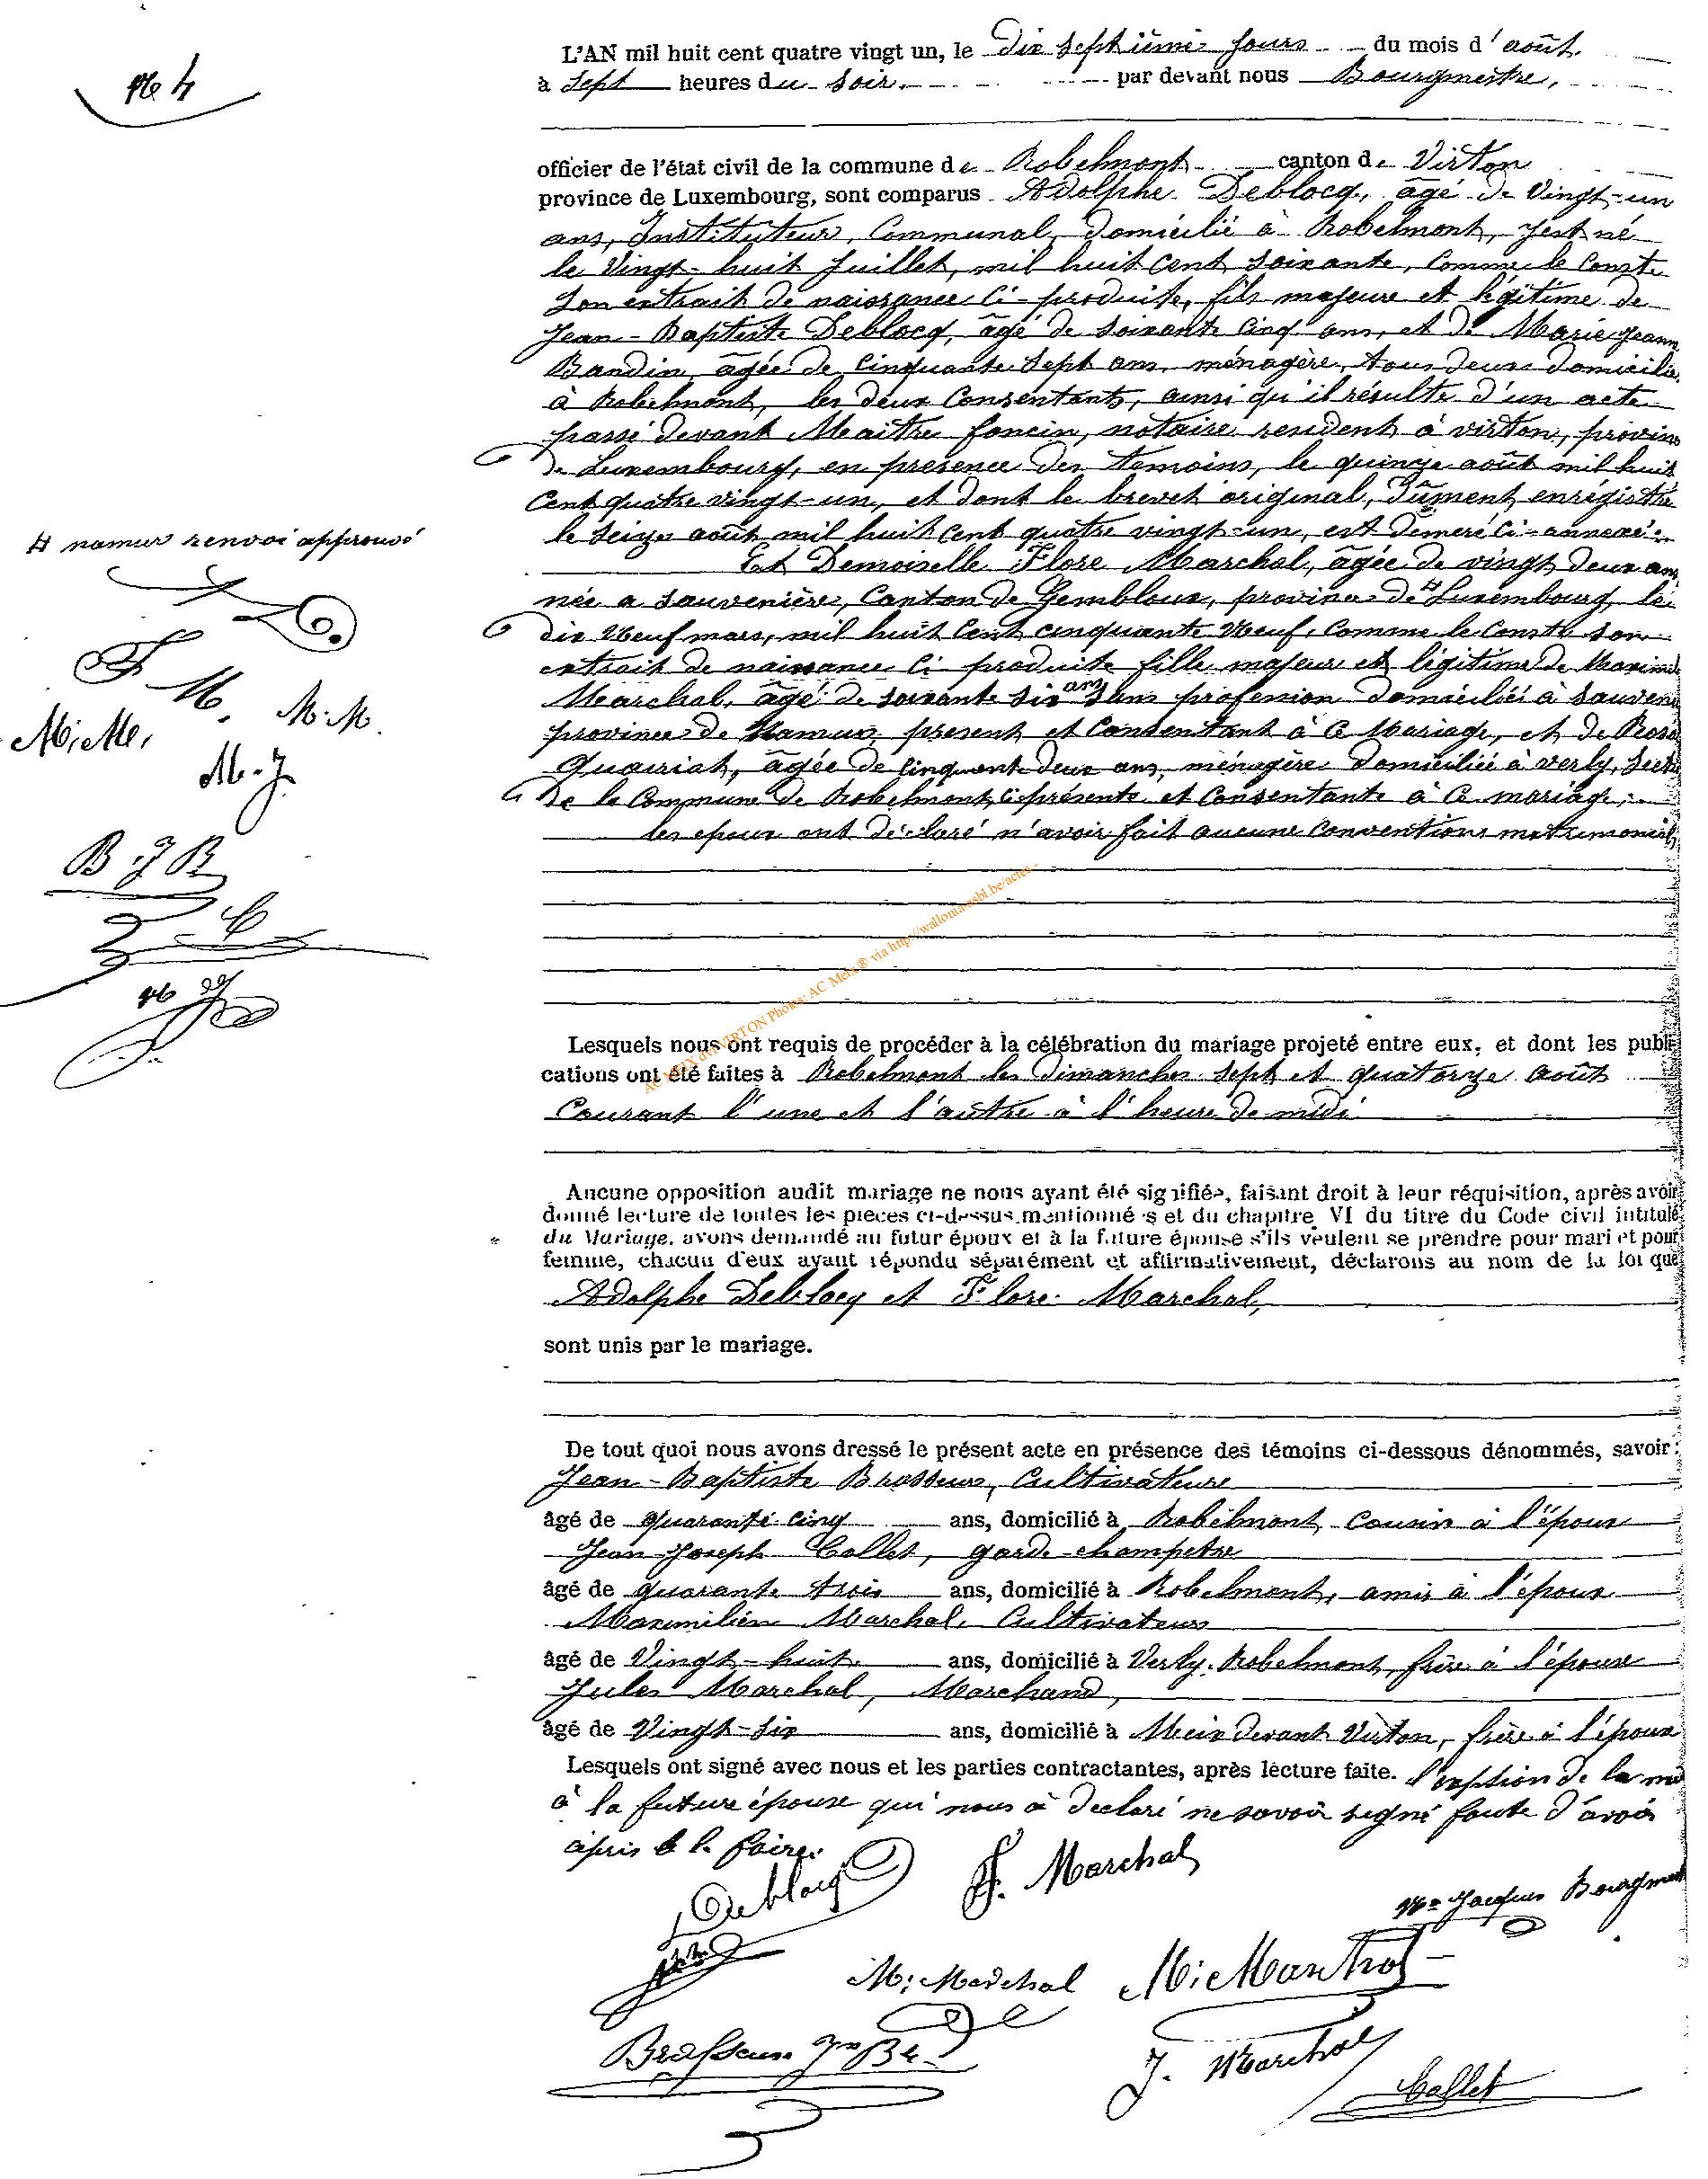 № 4
L'AN mil huit cent quatre vingt un, le dix septième jours du mois d'août.
à sept heures du soir. par devant nous Bourgmestre,
officier de l'état civil de la commune de Robelmont canton de Virton
province de Luxembourg, sont comparus Adolphe Deblocq, âgé de Vingt-un
ans, Instituteur, Communal, domicilié à Robelmont, y est né
le Vingt-huit Juillet, mil huit cent soixante, comme le Conste
son extrait de naissance ci-produite, fils majeure et légitime de
Jean-Baptiste Deblocq, âgé de soixante cinq ans, et de Marie Jeann
Bandin, âgée de cinquante sept ans, ménagère, tous deux domicilié
à Robelmont, les deux Consentants, ainsi qu'il résulte d'un acte
passé devant Maître foncin, notaire resident à virton, provinc
de Luxembourg, en presence des temoins, le quinze août mil huit
cent quatre vingt-un, et dont le brevet original, dûment enrégistré
le seize août mil huit cent quatre vingt-un, est demeré ci-annexé.
Et Demoiselle Flore Marchal, âgée de vingt deux ans
née a Sauvenière, Canton de Gembloux, province de # Luxembourg, le
dix Neuf mars, mil huit cent cinquante Neuf, comme le Conste son
extrait de naissance ci produite fille majeur et légitime de Maximil
Marchal, âgé de soixante six ans sans profession domicilié à Sauveni
province de Namur, présent et Consentant à ce Mariage, et de Rosa
Quairiat, âgée de cinquante deux ans, ménagère domiciliée à Verly, Secti
de la Commune de Robelmont, ci présente et Consentante à ce mariage;
les epoux ont déclaré n'avoir fait aucune conventions matrimonial
# namur renvoi approuvé
F M.
M. M.
Mi Me,
M. J.
B J B
C
AC MEIX dvt VIRTON Photos: AC Meix ® via http://wallonia-asbl.be/actes-
Lesquels nous ont requis de procéder à la célébration du mariage projeté entre eux, et dont les publi
cations ont été faites à Robelmont les dimanches sept et quatorze août
Courant l'une et l'autre à l'heure de midi
Aucune opposition audit mariage ne nous ayant été signifiée, faisant droit à leur réquisition, après avoir
donné lecture de toutes les pièces ci-dessus mentionnées et du chapitre VI du titre du Code civil intitulé
du Mariage, avons demandé au futur époux et à la future épouse s'ils veulent se prendre pour mari et pour
femme, chacun d'eux ayant répondu séparément et affirmativement, déclarons au nom de la loi que
Adolphe Deblocq et Flore Marchal,
sont unis par le mariage.
De tout quoi nous avons dressé le présent acte en présence des témoins ci-dessous dénommés, savoir:
Jean-Baptiste Brasseur, Cultivateure
âgé de quarante cinq ans, domicilié à Robelmont cousin à l'époux
Jean Joseph Collet, garde-champetre
âgé de quarante trois ans, domicilié à Robelmont, amis à l'époux
Maximilien Marchal, Cultivateurs
âgé de Vingt-huit ans, domicilié à Verly, Robelmont, frère à l'épouse
Jules Marchal, Marchand,
âgé de Vingt-six ans, domicilié à Meix devant Virton, frère à l'épouse
Lesquels ont signé avec nous et les parties contractantes, après lecture faite. l'exption de la mè
à la future épouse qui nous à declaré ne savoir signé faute d'avoir
apris à le faire.
Deblocq
F. Marchal
Jacques Bourgmest
Mi Marchal
Mi Marchal
Brasseur Jn Bte
J. Marchal
Collet